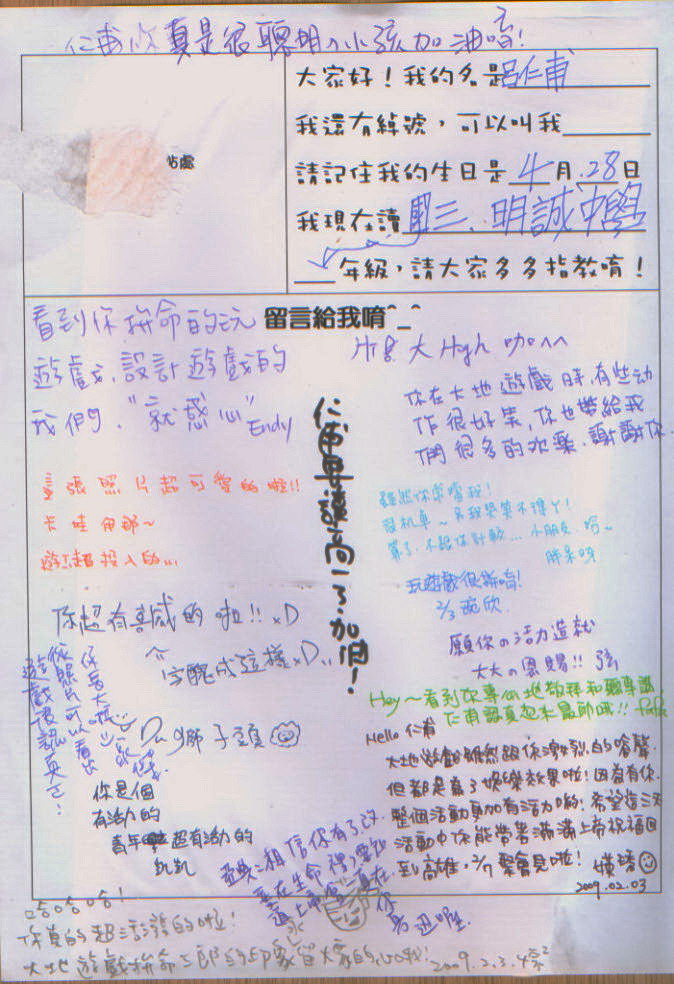 仁甫你真是很聰明ㄟ小孩加油唷!
貼處
大家好！我的名是呂仁甫
我還有綽號，可以叫我
請記住我的生日是4月28日
我現在讀國三、明誠中學
年級，請大家多多指教唷！
留言給我唷^_^
看到你拚命的玩
遊戲、設計遊戲的
我們，"就感心" Endy
大High咖^^
你在大地遊戲時,有些动
作很好笑,你也帶給我
們很多的欢樂.謝謝你.
仁甫要讀高一了.加油!
這張照片超可愛的啦!!
卡哇伊那~
遊戲超投入的...
算了.不跟你計較... 小朋友.哈~
玩遊戲很新唷!
2/3 琬欣
你超有喜感的啦!! xD
字醜成這樣xD..
願你の活力造就
大大の恩賜!! 弦
Hey~看到你專心地敬拜和聽專講
仁甫認真起來最帥哦!!
Hello 仁甫
大地遊戲雖然跟你激烈的嗆聲
但都是為了娛樂效果啦!因為有你.
整個活動更加有活力喲!希望這三天
活動中你能帶著滿滿上帝祝福回
到高雄,2/7聚會見啦!
2009.02.03
獅子頭
你照片可以看出
遊戲很認真ㄛ!
你是個
有活力的
青年 超有活力的
凱凱
相信你有了改
在生命裡,要
哈哈哈哈!
你真的超活潑的啦!
大地遊戲拚命三郎的印象留大家的心哦! 2009.2.3.